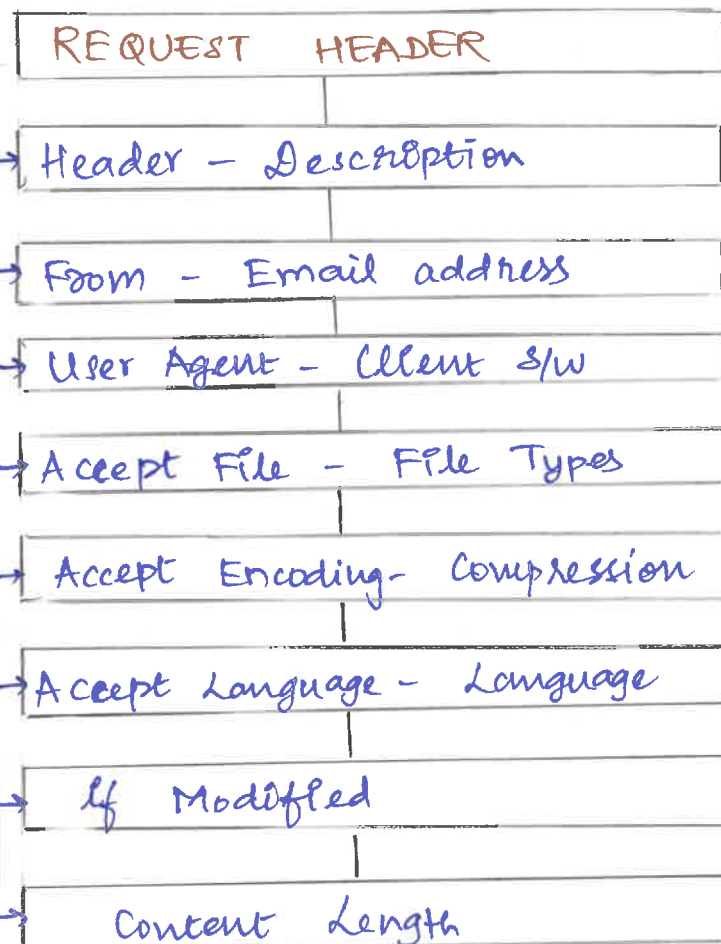 REQUEST HEADER
Header - Description
From - Email address
User Agent - Client s/w
Accept File - File Types
Accept Encoding - Compression
Accept Language - Language
If Modified
Content Length